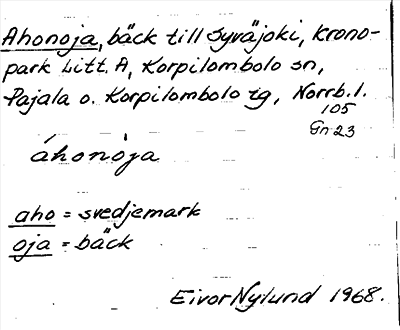 Ahonoja, bäck till Syväjoki, krono-
park Litt. A, Korpilombolo sn,
Pajala o. Korpilombolo tg, Norrb. l.
105
Gn 23
áhonòja
aho = svedjemark
oja = bäck
Eivor Nylund 1968.